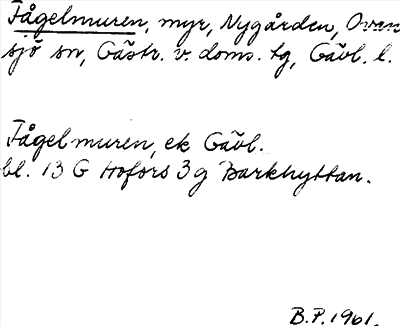 Fågelmuren, myr, Nygården, Ovan
sjö sn, Gästr. v. doms. tg, Gävl. l.
Fågelmuren, ek Gävl.
bl. 13 G Hofors 3 g Barkhyttan.
B.P. 1961.